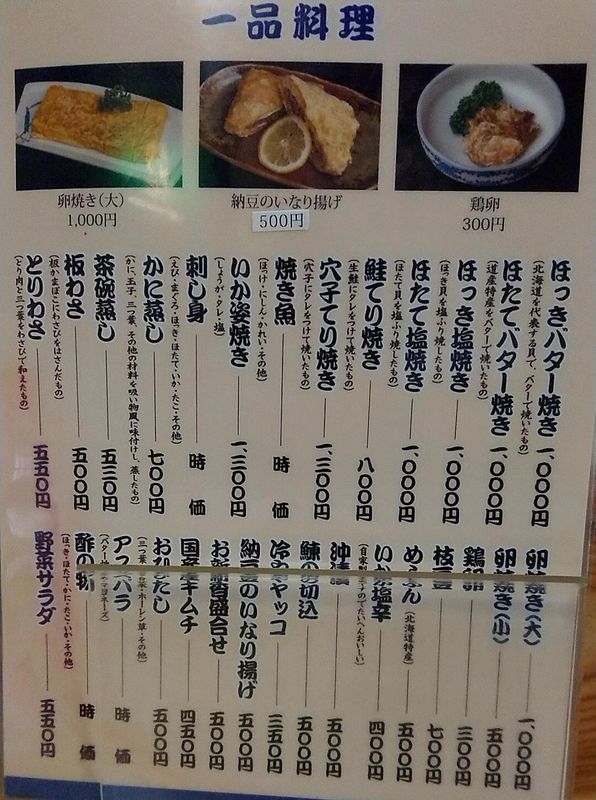 一品料理
卵焼き(大)
1,000円
納豆のいなり揚げ
500円
鶏卵
300円
ほっきバター焼き 一、〇〇〇円
(北海道を代表する貝で、バターで焼いたもの)
ほたてバター焼き 一、〇〇〇円
(道産特産をバターで焼いたもの)
ほっき塩焼き 一、〇〇〇円
(ほっき貝を塩ふり焼したもの)
ほたて塩焼き 一、〇〇〇円
(ほたて貝を塩ふり焼したもの)
鮭てり焼き 八〇〇円
(生鮭にタレをつけて焼いたもの)
穴子てり焼き 一、三〇〇円
(穴子にタレをつけて焼いたもの)
焼き魚 時価
(ほっけ・にしん・かれい・その他)
いか姿焼き 一、三〇〇円
(しょうが・タレ・塩)
刺し身 時価
(えび・まぐろ・ほっき・ほたて・いか・たこ・その他)
かに蒸し 七〇〇円
(かに、玉子、三つ葉、その他の材料を吸い物風に味付けし、蒸したもの)
茶碗蒸し 五五〇円
板わさ 五〇〇円
(板かまぼこにわさびをはさんだもの)
とりわさ 五五〇円
(とり肉と三つ葉をわさびで和えたもの)
卵焼き(大) 一、〇〇〇円
卵焼き(小) 五〇〇円
鶏卵 三〇〇円
枝豆 七〇〇円
めふん (北海道特産) 五〇〇円
いか塩辛 四〇〇円
沖漬 五〇〇円
鰊の切込 五〇〇円
冷やヤッコ 三五〇円
納豆のいなり揚げ 五〇〇円
お新香盛合せ 五〇〇円
国産キムチ 四五〇円
おひたし 五〇〇円
アスパラ 時価
酢の物 時価
(ほっき・ほたて・かに・たこ・いか・その他)
野菜サラダ 五五〇円